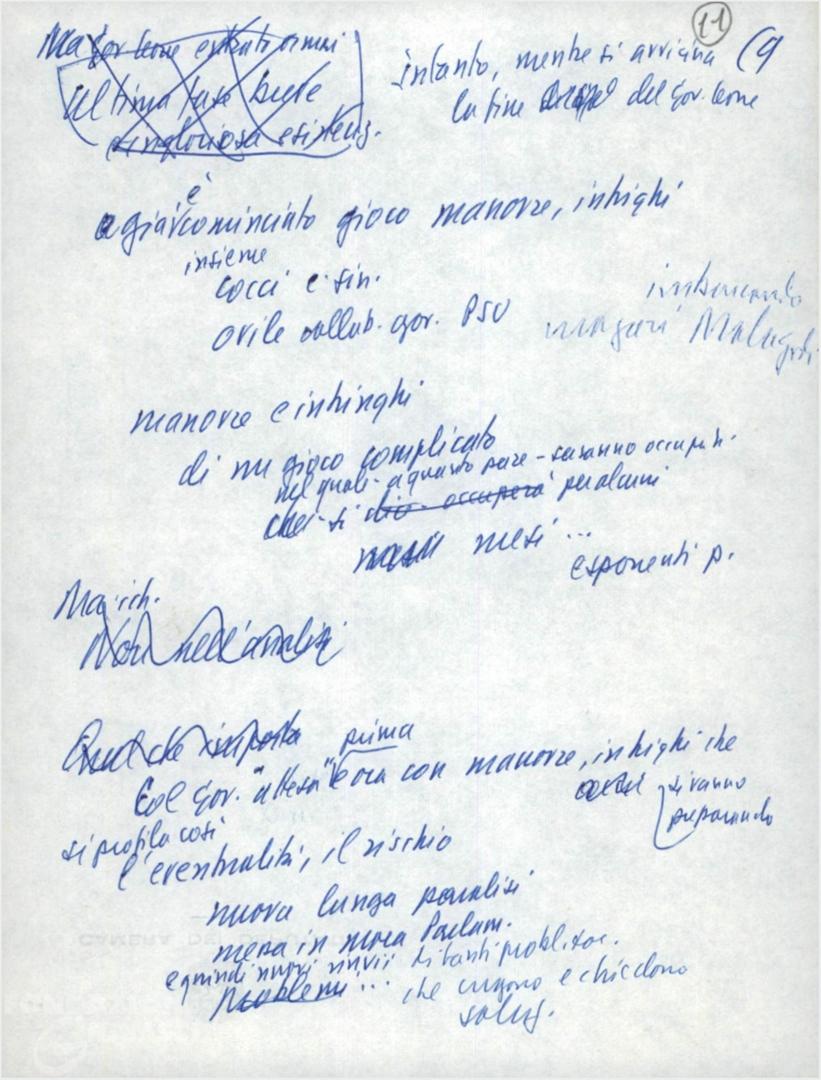 11
(9
Ma Gov. Leone entrato ormai
ultima fase breve
ingloriosa esistenz.
intanto, mentre si avvicina
la fine del Gov. Leone
è
già cominciato gioco manovre, intrighi
insieme
cocci c. sin.
ovile collab. gov. PSU
imbarcando
magari Malagodi
manovre e intrighi
di un gioco complicato
nel quale - a quanto pare - saranno occupati
che - si occuperà per alcuni
mesi ...
esponenti p.
Ma rich.
Non nell'analisi
Quel che importa
prima
Col Gov. "attesa" e ora con manovre, intrighi che
si vanno
preparando
si profila così
l'eventualità, il rischio
nuova lunga paralisi
messa in mora Parlam.
e quindi nuovi rinvii di tanti probl. soc.
Problemi ... che urgono e chiedono
soluz.
CAMERA DEI